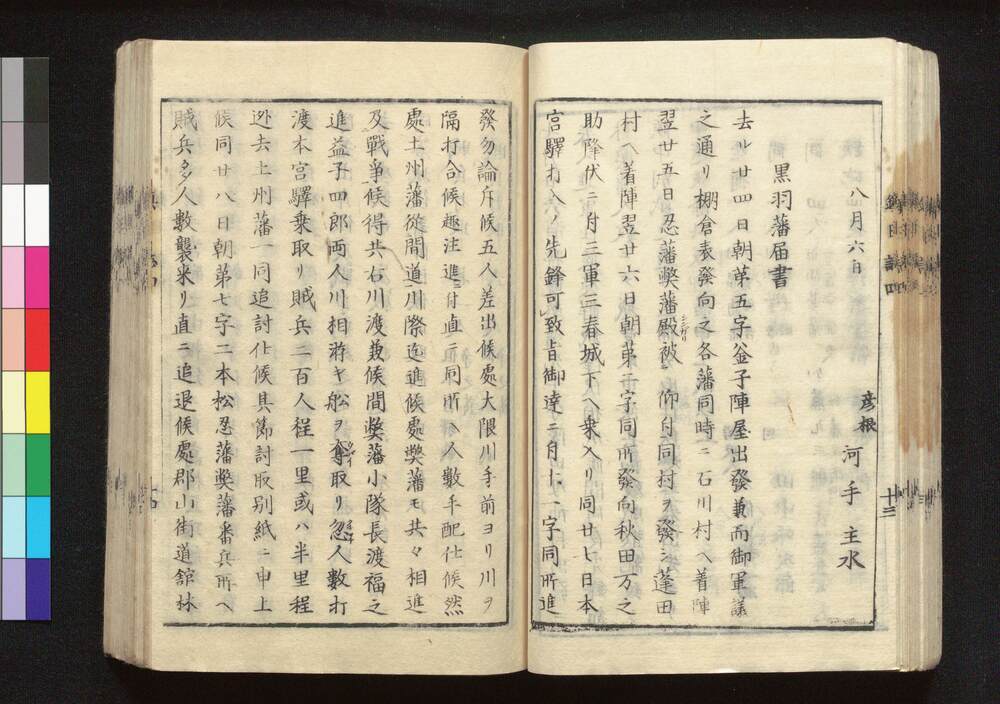 八月六日
彦根 河手主水
黒羽藩届書
去ル廿四日朝第五字金子陣屋出發兼而御軍議
之通リ棚倉表發向之各藩同時ニ石川村ヘ着陣
翌廿五日忍藩弊藩殿被 仰付同村ヲ發シ蓬田
村ヘ着陣翌廿六日朝第十字同所發向秋田万之
助降伏ニ付三軍三春城下ヘ乗入リ同廿七日本
宮驛打入ノ先鋒可致旨御達ニ付十一字同所進
發勿論斥候五人差出候處大隈川手前ヨリ川ヲ
隔打合候趣注進ニ付直ニ同所ヘ人數手配仕候然
處土州藩従間道川際迄進候處弊藩モ共々相進
及戰爭候得共右川渡兼候間弊藩小隊長渡福之
進益子四郎両人川相游キ舩ヲ奪取リ忽人數打
渡本宮驛乗取リ賊兵二百人程一里或ハ半里程
逃去土州藩一同追討仕候其節討取別紙ニ申上
候同廿八日朝第七字二本松忍藩弊藩番兵所ヘ
賊兵多人數襲来リ直ニ追退候處郡山街道舘林
十三